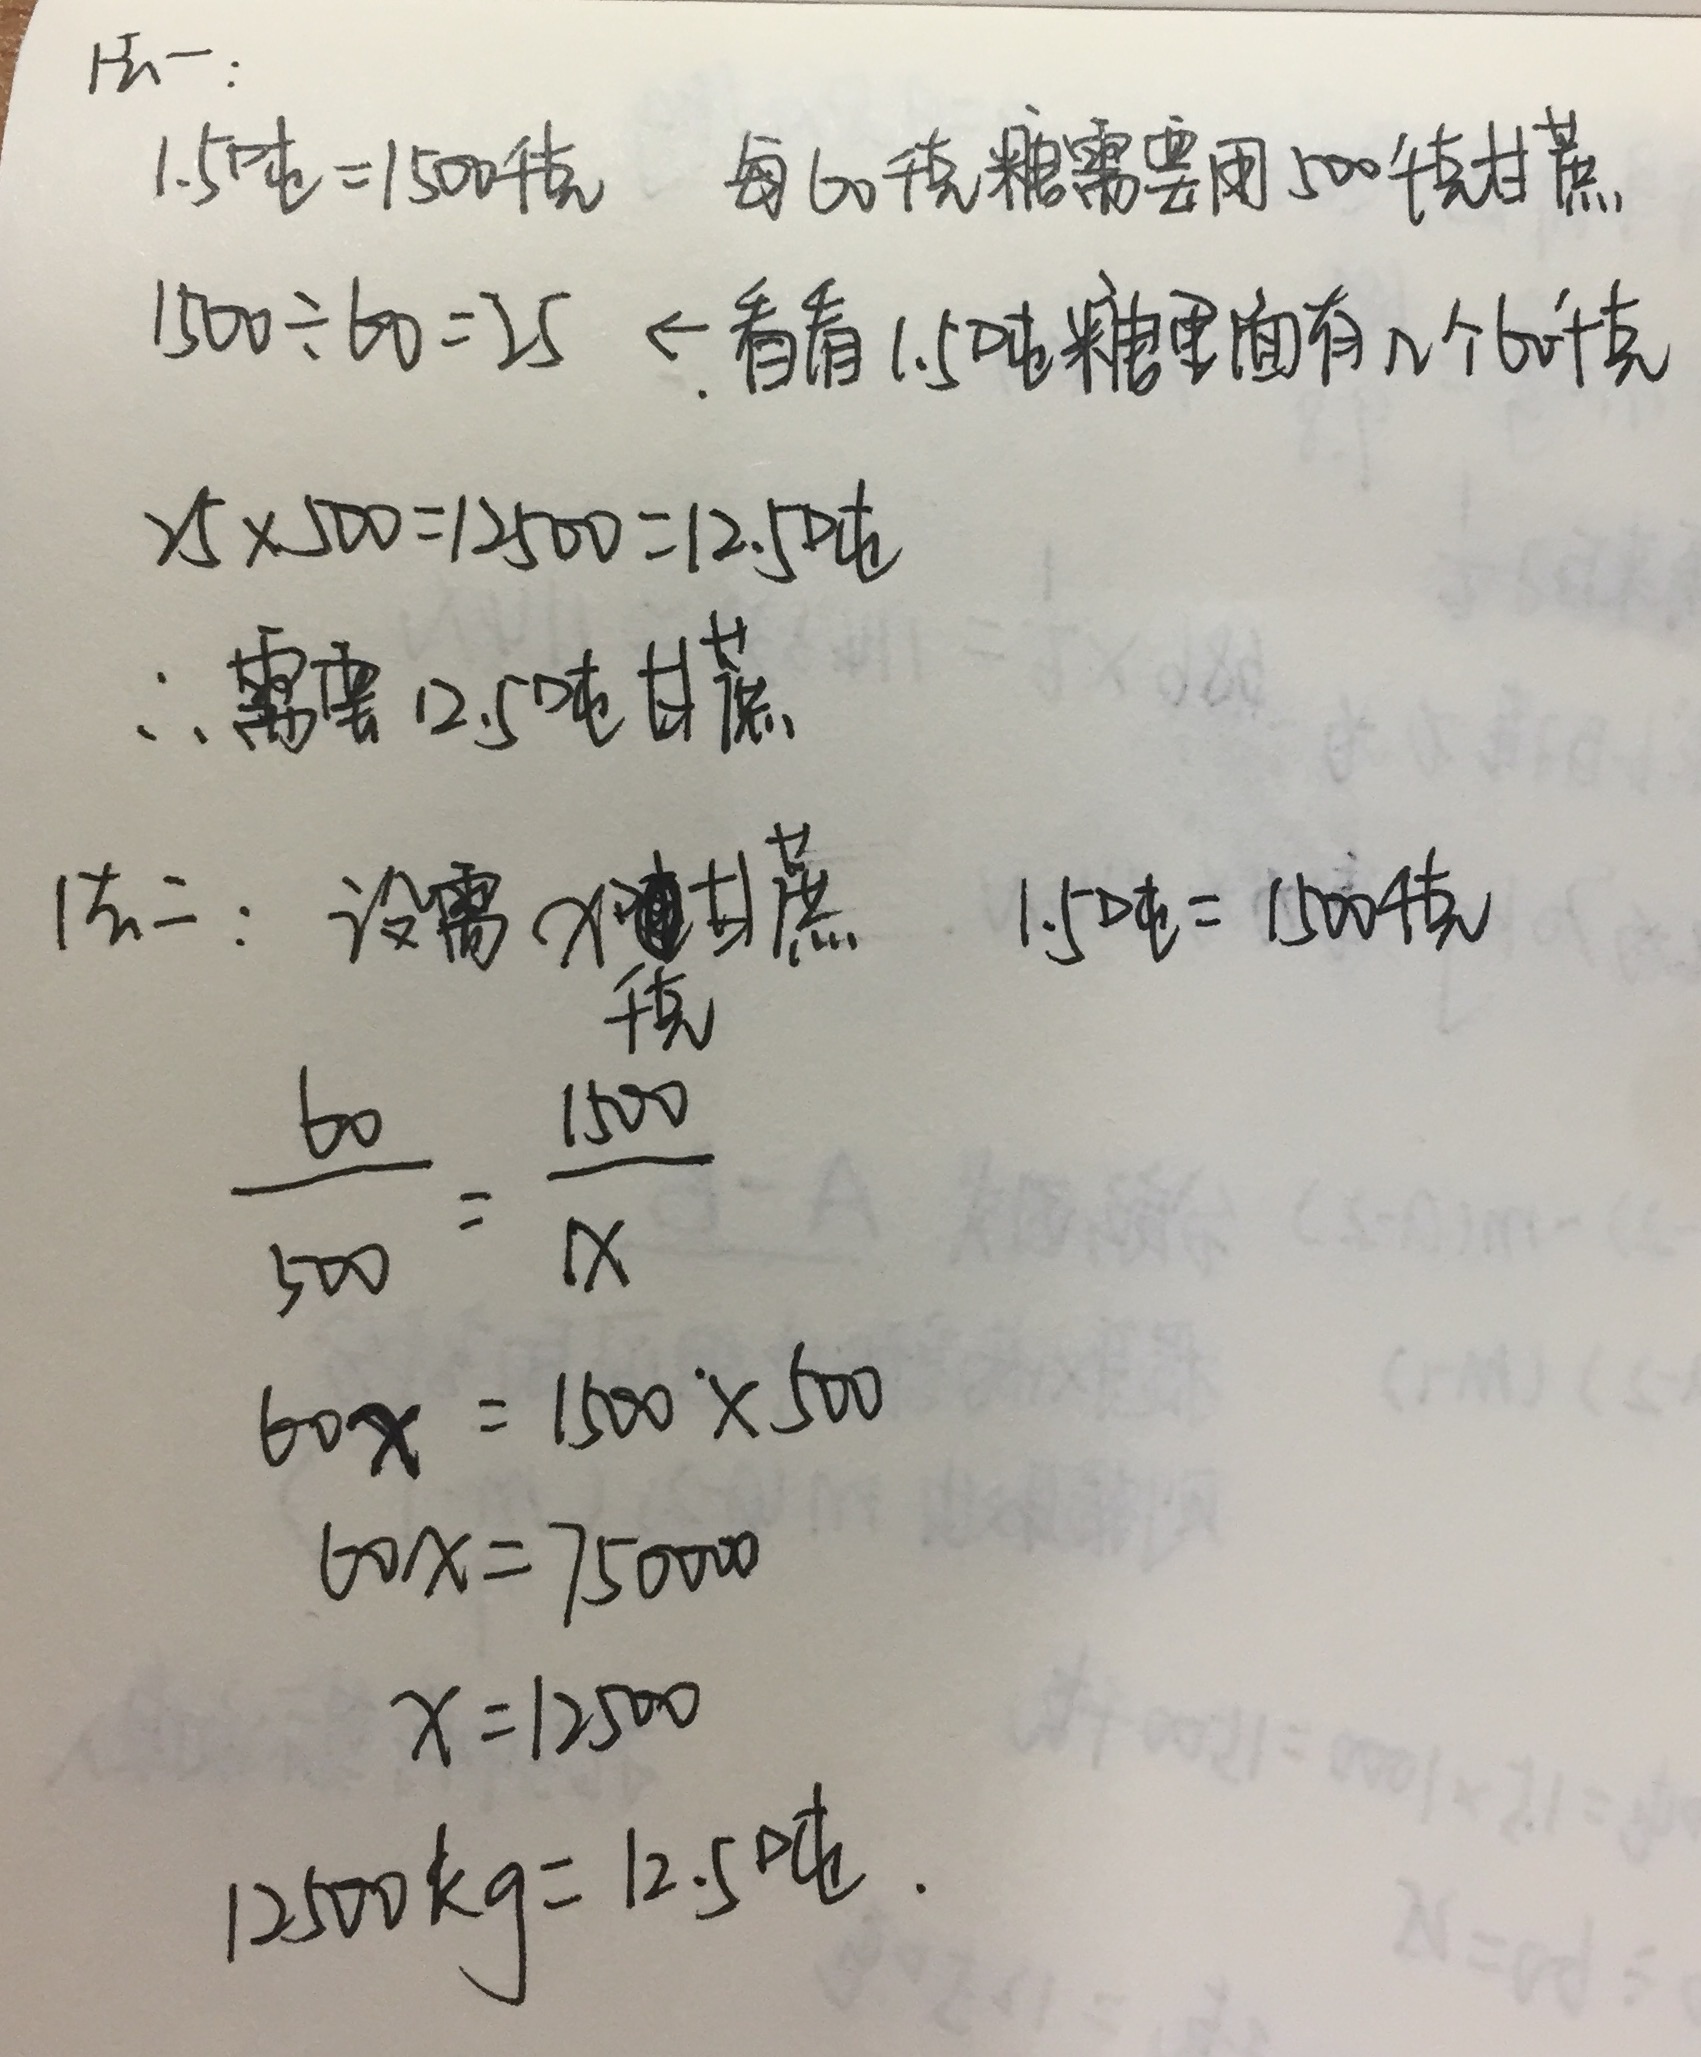 法一:
1.5吨=1500千克 每60千克糖需要用500千克甘蔗
1500÷60=25 ← 看看1.5吨糖里面有几个60千克
25×500=12500=12.5吨
∴需要12.5吨甘蔗
法二: 设需x千克甘蔗 1.5吨=1500千克
60/500 = 1500/x
60x = 1500×500
60x=750000
x=12500
12500kg=12.5吨.